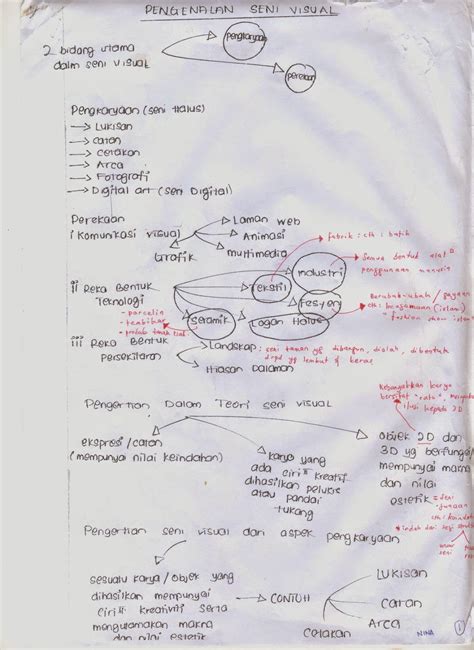 PENGENALAN SENI VISUAL
2 bidang utama
dalm seni visual
pengkaryaan
perekaan
Pengkaryaan (seni Halus)
→ Lukisan
→ catan
→ cetakan
→ Arca
→ Fotografi
→ Digital art (seni Digital)
Perekaan
i Komunikasi visual
Laman web
Animasi
multimedia
Grafik
fabrik : cth : batik
semua bentuk
penggunaan manusia
ii Reka Bentuk
Teknologi
Industri
Tekstil
Fesyen
Logam Halus
seramik
- porcelin
- tembikar
- produk tanah liat
Berubah-ubah / gayaan
fashion show
iii Reka Bentuk
Persekitaran
Landskap : seni taman yg dibangun, diolah, dibentuk
drpd yg lembut & keras
Hiasan Dalaman
Pengertian Dalam Teori seni visual
ekspresi / catan
(mempunyai nilai keindahan)
karya yang
ada ciri² kreatif
dihasilkan pelukis
atau pandai
tukang
Objek 2D dan
3D yg berfungsi
mempunyai makna
dan nilai
estetik
ilusi kepada 3D
Pengertian seni visual dan aspek pengkaryaan
sesuatu karya / objek yang
dihasilkan mempunyai
ciri² kreativiti serta
mengutamakan makna
dan nilai estetik
→ CONTOH
LUKISAN
Catan
Arca
Cetakan
NINA
1